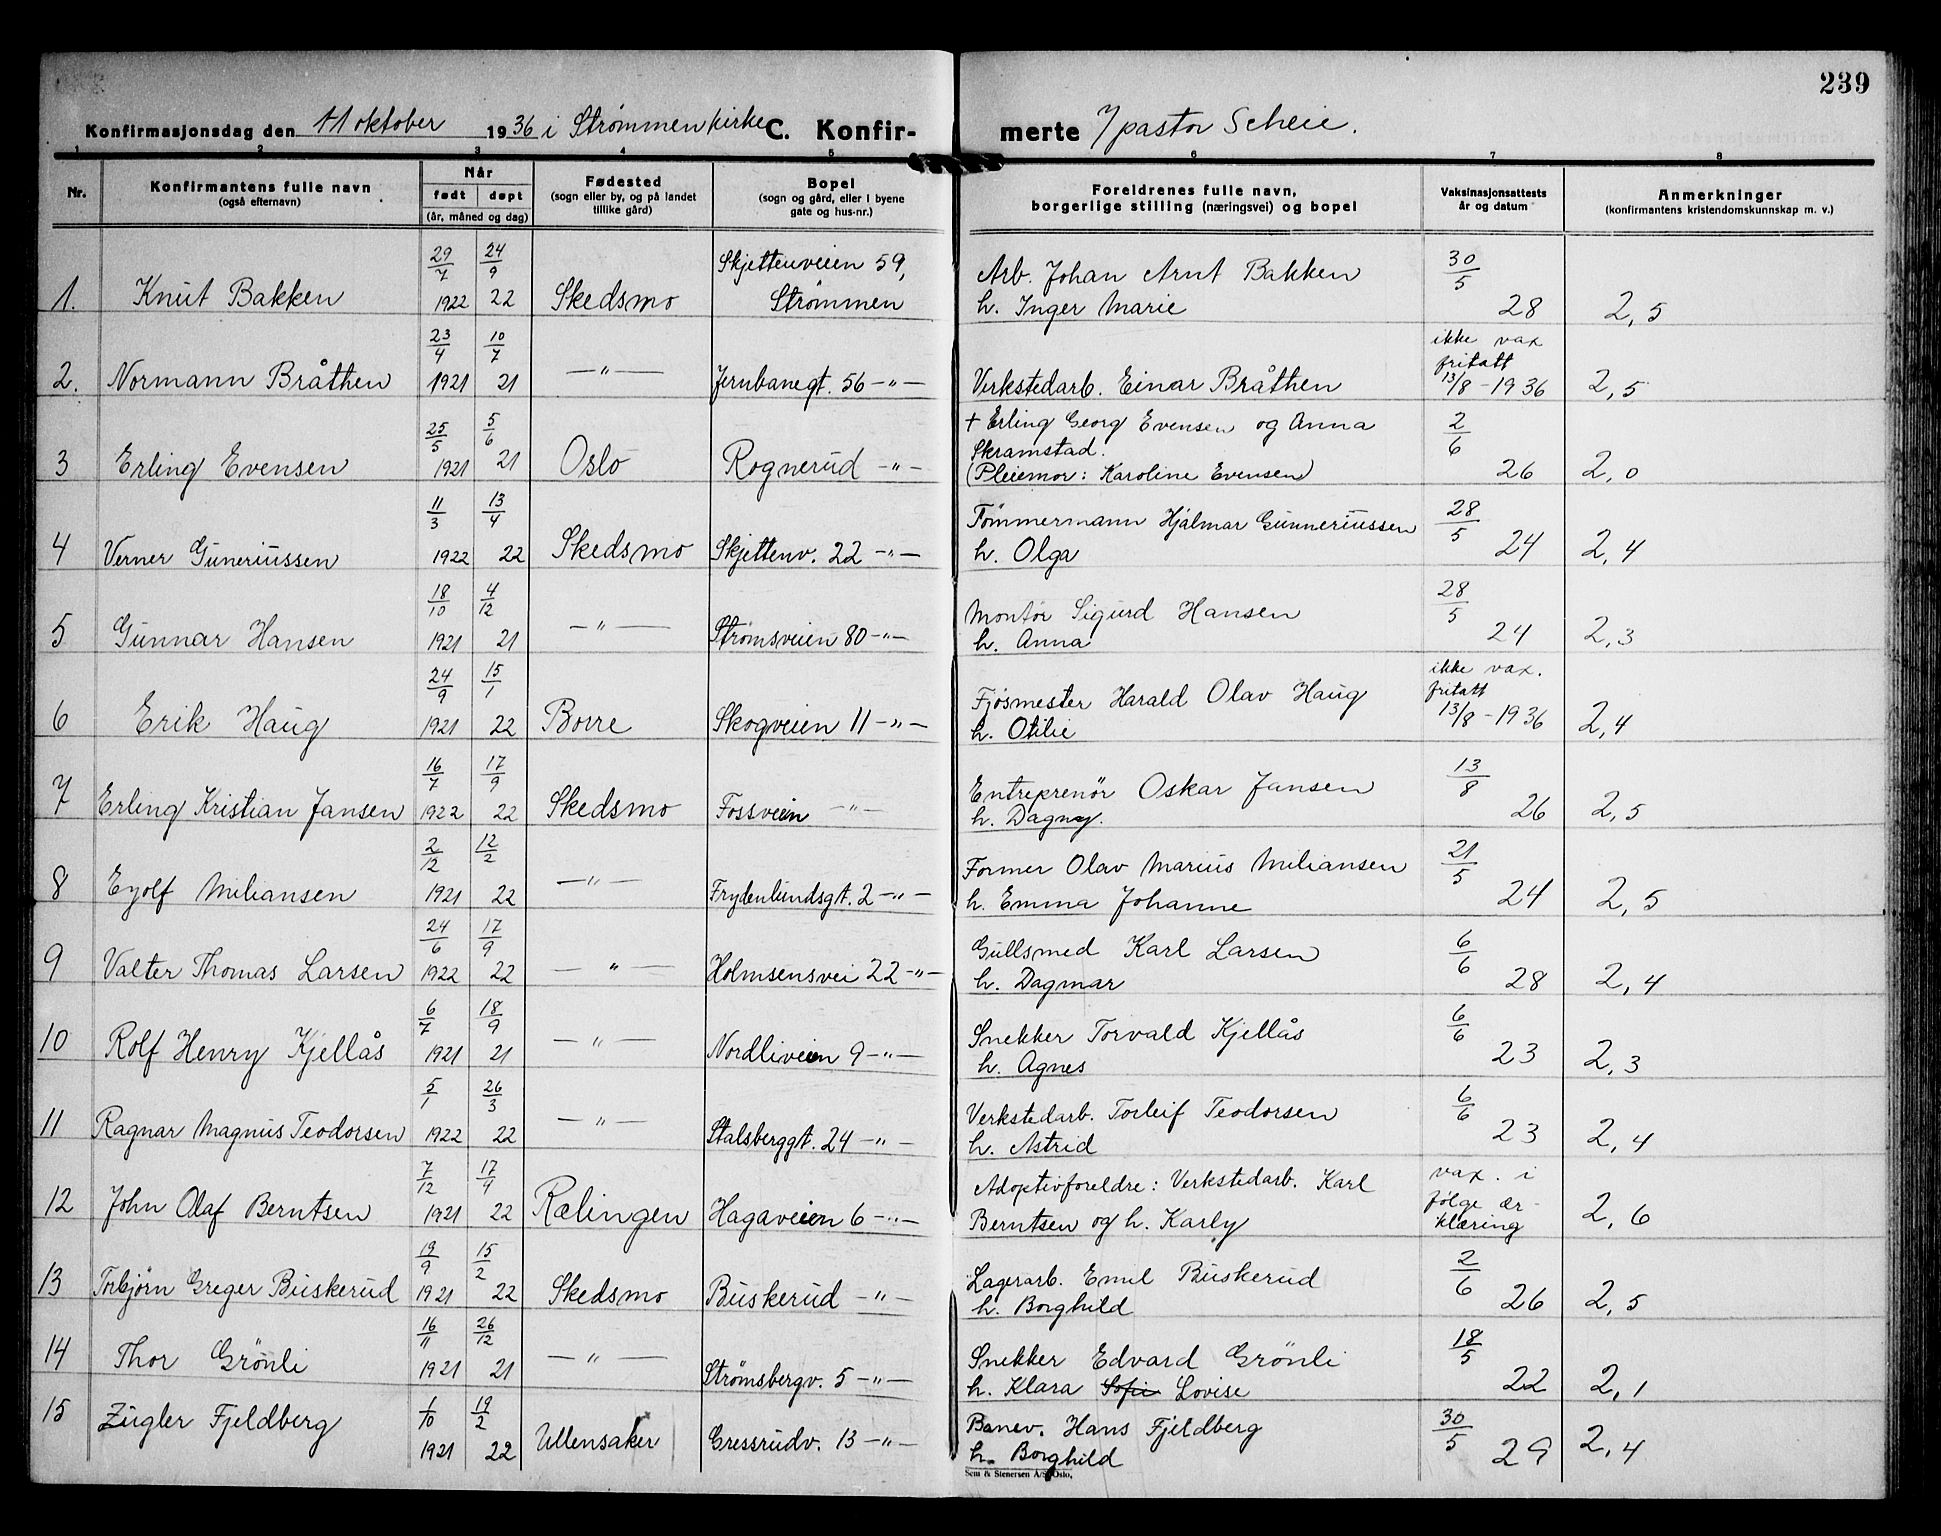 239
Konfirmasjonsdag den 11 oktober 1936 i Strømmen kirke C. Konfir- merte v/pastor Scheie.
1 2 3 4 5 6 7 8
Nr. Konfirmantens fulle navn (også efternavn) Når født døpt (år, måned og dag) Fødested (sogn eller by, og på landet tillike gård) Bopel (sogn og gård, eller i byene gate og hus-nr.) Foreldrenes fulle navn, borgerlige stilling (næringsvei) og bopel Vaksinasjonsattests år og datum Anmerkninger (konfirmantens kristendomskunnskap m. v.)
29/7 24/9 Skjettenveien 59, Arb. Johan Arnt Bakken 30/5
1. Knut Bakken 1922 22 Skedsmo Strømmen h. Inger Marie 28 2,5
23/4 10/7 ikke vax fritatt
2. Normann Bråthen 1921 21 —"— Jernbanegt. 56 —"— Verkstedarb. Einar Bråthen 13/8-1936 2,5
25/5 5/6 + Erling Georg Evensen og Anna 2/6
Skramstad.
3 Erling Evensen 1921 21 Oslo Rognerud —"— (Pleiemor: Karoline Evensen) 26 2,0
11/3 13/4 Tömmermann Hjalmar Gunneriussen 28/5
4 Verner Guneriussen 1922 22 Skedsmo Skjettenv. 22 —"— h. Olga 24 2,4
18/10 4/12 Montör Sigurd Hansen 28/5
5 Gunnar Hansen 1921 21 —"— Strømsveien 80 —"— h. Anna 24 2,3
24/9 15/1 Fjösmester Harald Olav Haug ikke vax. fritatt
6 Erik Haug 1921 22 Borre Skogveien 11 —"— h. Otilie 13/8-1936 2,4
16/7 17/9 Entreprenör Oskar Jansen 13/8
7 Erling Kristian Jansen 1922 22 Skedsmo Fossveien —"— h. Dagny. 26 2,5
2/12 12/2 Former Olav Marius Miliansen 21/5
8 Eyolf Miliansen 1921 22 —"— Frydenlundsgt. 2 —"— h. Emma Johanne 24 2,5
24/6 17/9 Gullsmed Karl Larsen 6/6
9 Valter Thomas Larsen 1922 22 —"— Holmsensvei 22 —"— h. Dagmar 28 2,4
6/7 18/9 Snekker Torvald Kjellås 6/6
10 Rolf Henry Kjellås 1921 21 —"— Nordliveien 9 —"— h. Agnes 23 2,3
5/1 26/3 Verkstedarb. Torleif Teodorsen 6/6
11 Ragnar Magnus Teodorsen 1922 22 —"— Stalsberggt. 24 —"— h. Astrid 23 2,4
7/12 17/4 Adoptivforeldre: Verkstedarb. Karl vax. i følge er-
12 John Olaf Berntsen 1921 22 Rælingen Hagaveien 6 —"— Berntsen og h. Karly klæring 2,6
19/9 15/2 Lagerarb. Emil Buskerud 2/6
13 Torbjørn Greger Buskerud 1921 22 Skedsmo Buskerud —"— h. Borghild 26 2,5
16/11 26/12 Snekker Edvard Grönli 18/5
14 Thor Grönli 1921 21 —"— Strømsbergv. 5 —"— h. Klara Sofie Lovise 22 2,1
1/10 19/2 Banev. Hans Fjeldberg 30/5
15 Zugler Fjeldberg 1921 22 Ullensaker Gressrudv. 13 —"— h. Borghild 29 2,4
Sem & Stenersen A/S, Oslo.